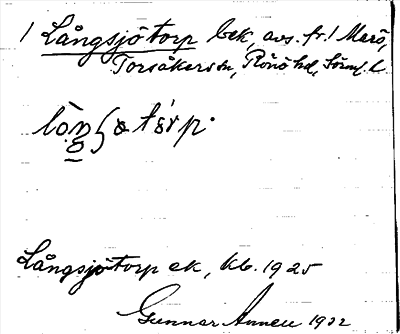 1 Långsjötorp bek, avs. fr. 1 Marö,
Torsåkers sn, Rönö hd, Sörml. l.
Långsjötorp ek, kb. 1925
Gunnar 1932